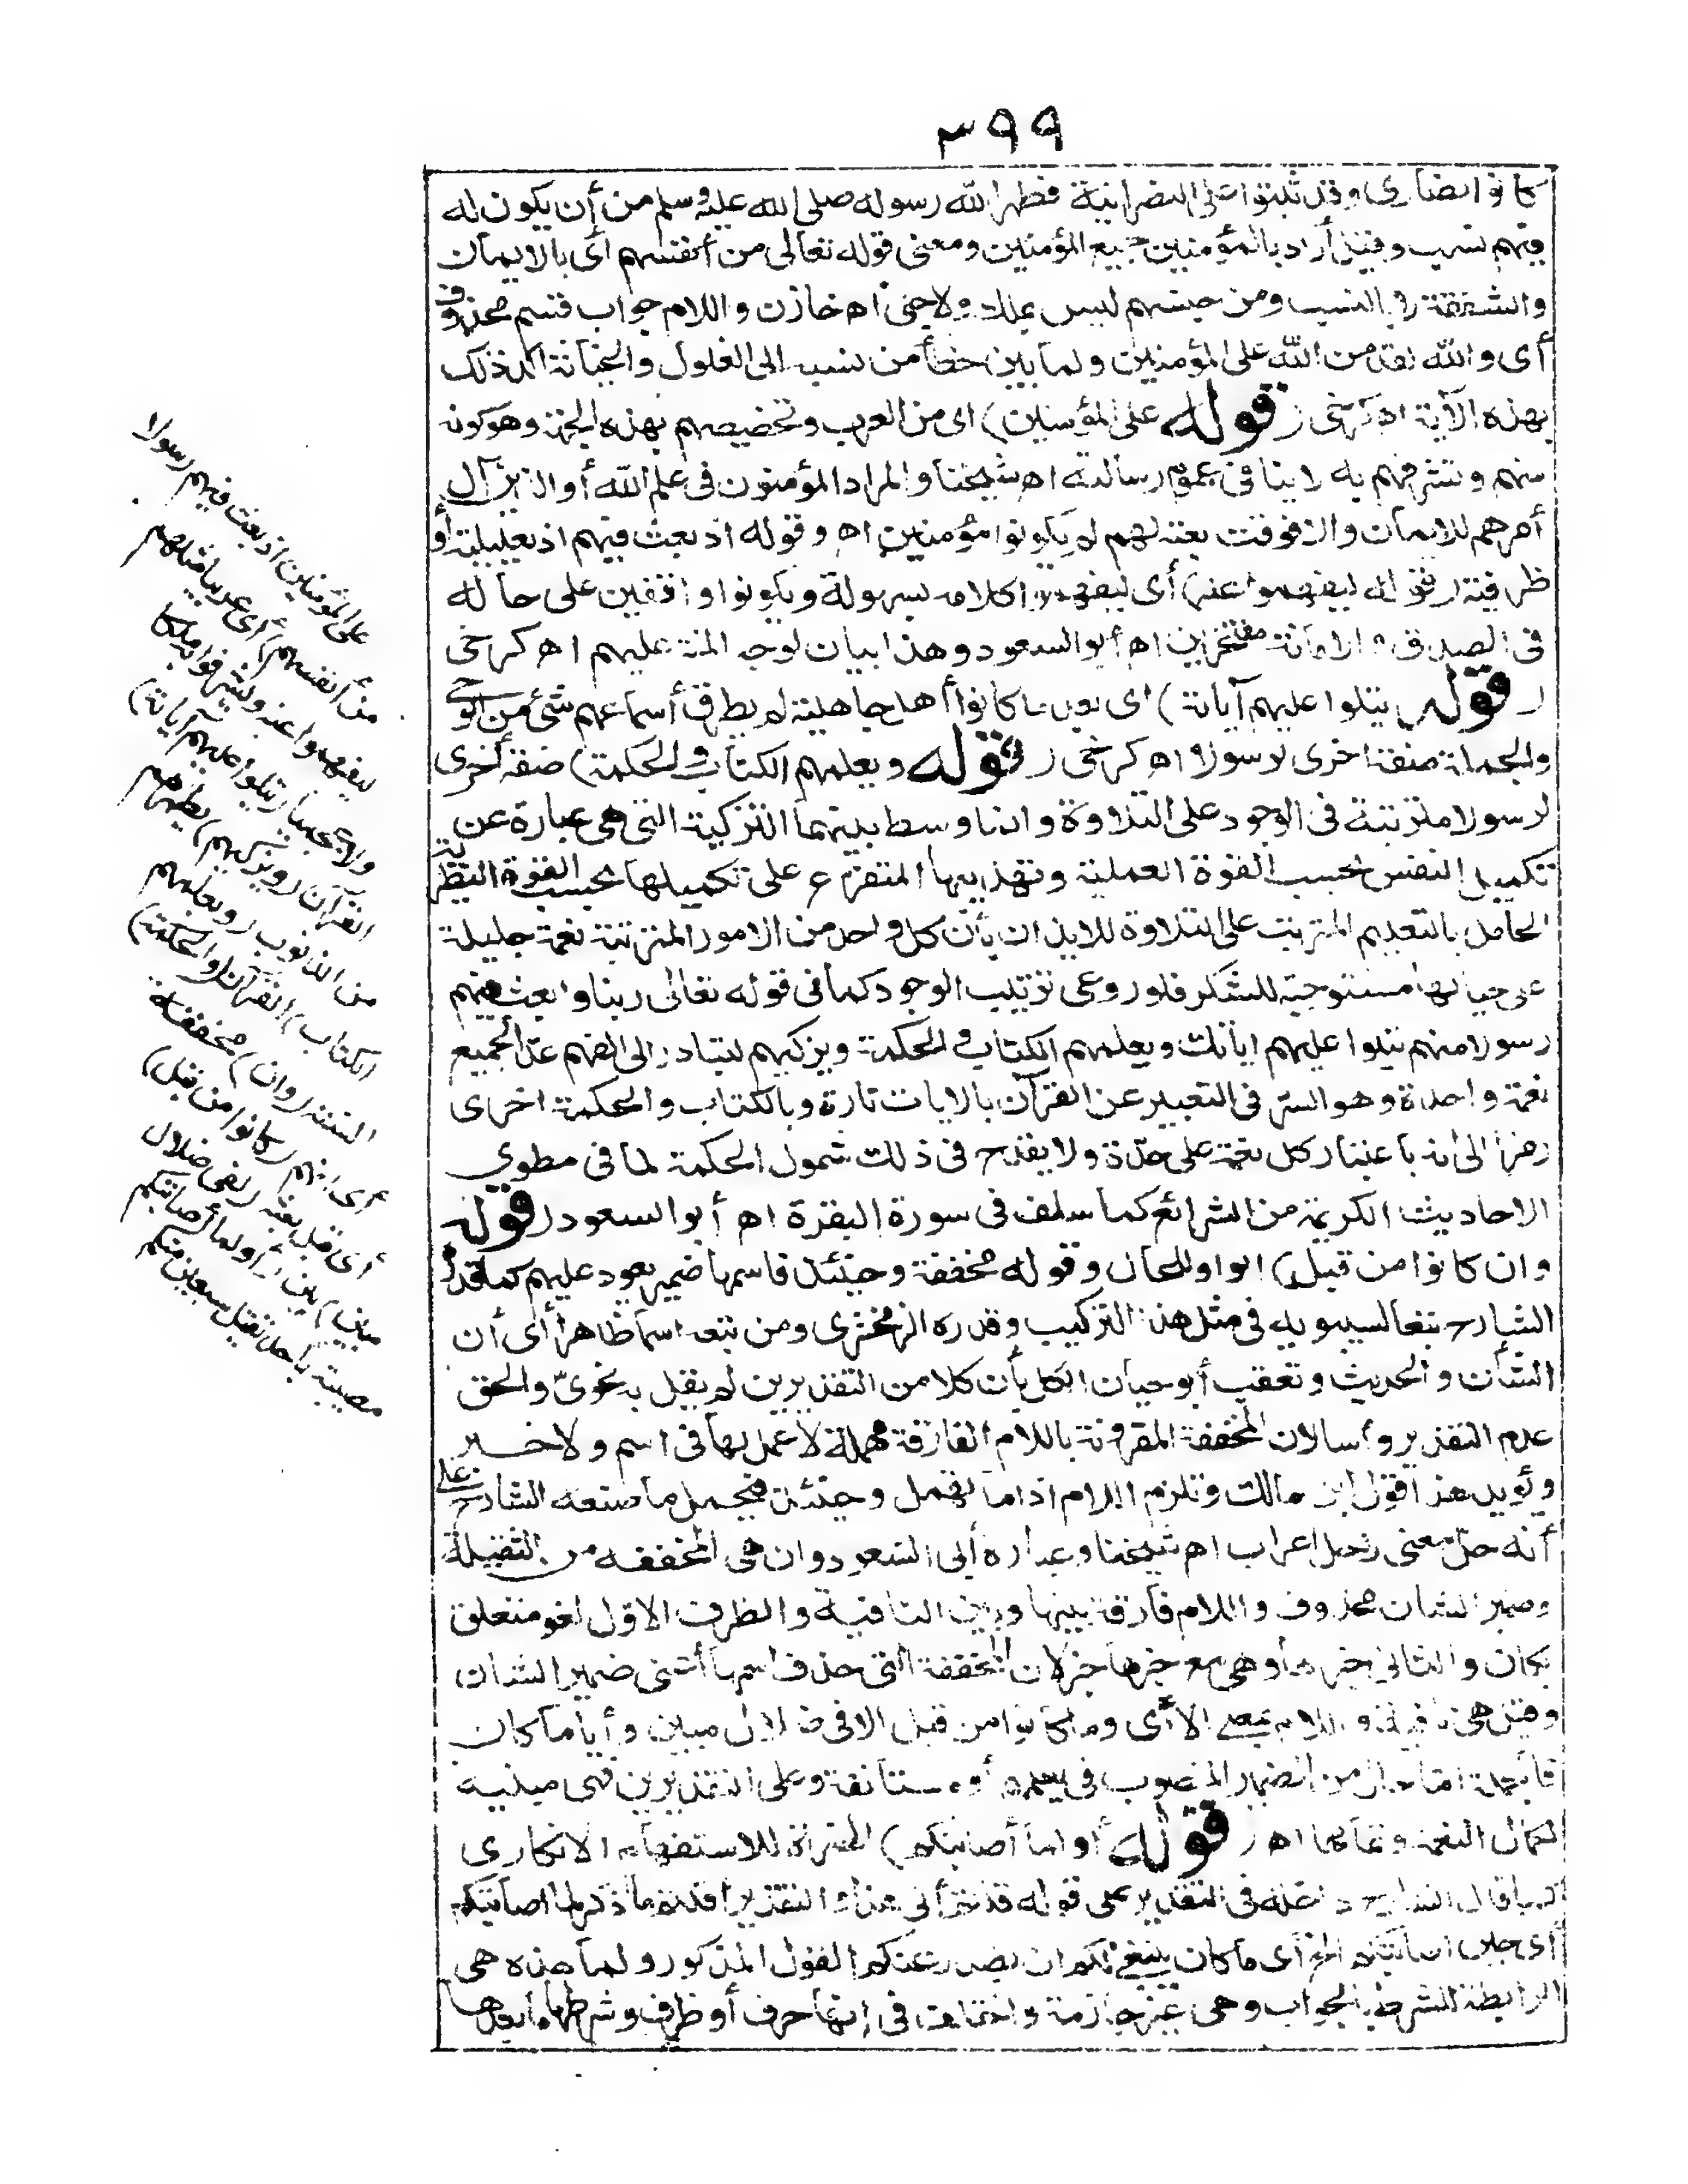 ٣٩٩
كانوا نصارى وقد ثبتوا على النصرانية فطهر الله رسوله صلى الله عليه وسلم من أن يكون له
فيهم نسب وقيل أراد بالمؤمنين جميع المؤمنين ومعنى قوله تعالى من أنفسهم أى بالايمان
والشفقة لا بالنسب ومن جنسهم ليس بملك ولا جنى اه خازن واللام جواب قسم محذوف
أى والله لقد من الله على المؤمنين ولما بين خطأ من نسبه الى الغلول والخيانة أكد ذلك
بهذه الآية اه كرخى (قوله على المؤمنين) اى من العرب وتخصيصهم بهذه المنة وهو كونه
منهم وتشرفهم به لا ينافى عموم رسالته اه شيخنا والمراد المؤمنون فى علم الله أو الذين آل
أمرهم للايمان والا فوقت بعثه لهم لم يكونوا مؤمنين اه وقوله اذ بعث فيهم اذ تعليلية أو
ظرفية (قوله ليفهموا عنه) أى ليفهموا كلامه بسهولة ويكونوا واقفين على حاله
فى الصدق والامانة مفتخرين اه أبو السعود وهذا بيان لوجه المنة عليهم اه كرخى
(قوله يتلوا عليهم آياته) اى بعد ما كانوا أهل جاهلية لم يطرق أسماعهم شئ من الوحى
والجملة صفة اخرى لرسولا اه كرخى (قوله ويعلمهم الكتاب والحكمة) صفة أخرى
لرسولا مترتبة فى الوجود على التلاوة وانما وسط بينهما التزكية التى هى عبارة عن
تكميل النفس بحسب القوة العملية وتهذيبها المتفرع على تكميلها بحسب القوة النظرية
الحاصل بالتعليم المترتب على التلاوة للايذان بأن كل واحد من الامور المترتبة نعمة جليلة
على حيالها مستوجبة للشكر فلو روعى ترتيب الوجود كما فى قوله تعالى ربنا وابعث فيهم
رسولا منهم يتلوا عليهم آياتك ويعلمهم الكتاب والحكمة ويزكيهم لتبادر الى الفهم عد الجميع
نعمة واحدة وهو السر فى التعبير عن القرآن بالايات تارة وبالكتاب والحكمة اخرى
رمزا الى انه باعتبار كل نعمة على حدة ولا يقدح فى ذلك شمول الحكمة لما فى مطوى
الاحاديث الكريمة من الشرائع كما سلف فى سورة البقرة اه أبو السعود (قوله
وان كانوا من قبل) الواو للحال وقوله مخففة وحينئذ فاسمها ضمير يعود عليهم كما قدره
الشارح تبعا لسيبويه فى مثل هذا التركيب وقدره الزمخشرى ومن تبعه اسما ظاهرا أى أن
الشأن والحديث وتعقب أبو حيان الكل بأن كلا من التقديرين لم يقل به نحوى والحق
عدم التقدير رأسا لان المخففة المقرونة باللام الفارقة مهملة لا عمل لها فى اسم ولا خبر
ويؤيد هذا قول ابن مالك وتلزم اللام اذا ما تهمل وحينئذ فيحمل ما صنعه الشارح على
أنه حل معنى لا حل اعراب اه شيخنا وعبارة أبى السعود وان هى المخففة من الثقيلة
وضمير الشان محذوف واللام فارقة بينها وبين النافية والظرف الاول لغو متعلق
بكان والثانى خبرها وهى مع خبرها خبر لان المخففة التى حذف اسمها أعنى ضمير الشان
وقيل هى نافية واللام بمعنى الا أى وما كانوا من قبل الا فى ضلال مبين وأيا ما كان
فالجملة اما حال من الضمير المنصوب فى يعلمهم أو مستأنفة وعلى التقديرين فهى مبينة
لكمال النعمة وتمامها اه (قوله أو لما أصابتكم) الهمزة للاستفهام الانكارى
كما قال الشارح داخلة فى التقدير على قوله قلتم أنى هذا والتقدير أقلتم ما ذكر لما أصابتكم
أى حين أصابتكم الخ أى ما كان ينبغى لكم ان يصدر عنكم القول المذكور ولما هذه هى
الرابطة للشرط بالجواب وهى غير جازمة واختلف فى إنها حرف أو ظرف وشرطها ما بعدها
على المؤمنين اذ بعث فيهم رسولا
من أنفسهم) أى عربيا مثلهم
ليفهموا عنه ويشرفوا به لا ملكا
ولا عجميا (يتلوا عليهم آياته)
القرآن (ويزكيهم) يطهرهم
من الذنوب (ويعلمهم
الكتاب) القرآن (والحكمة)
السنة (وان) مخففة
أى انهم (كانوا من قبل)
أى قبل بعثه (لفى ضلال
مبين) بين (أو لما أصابتكم
مصيبة) بأحد بقتل سبعين منكم